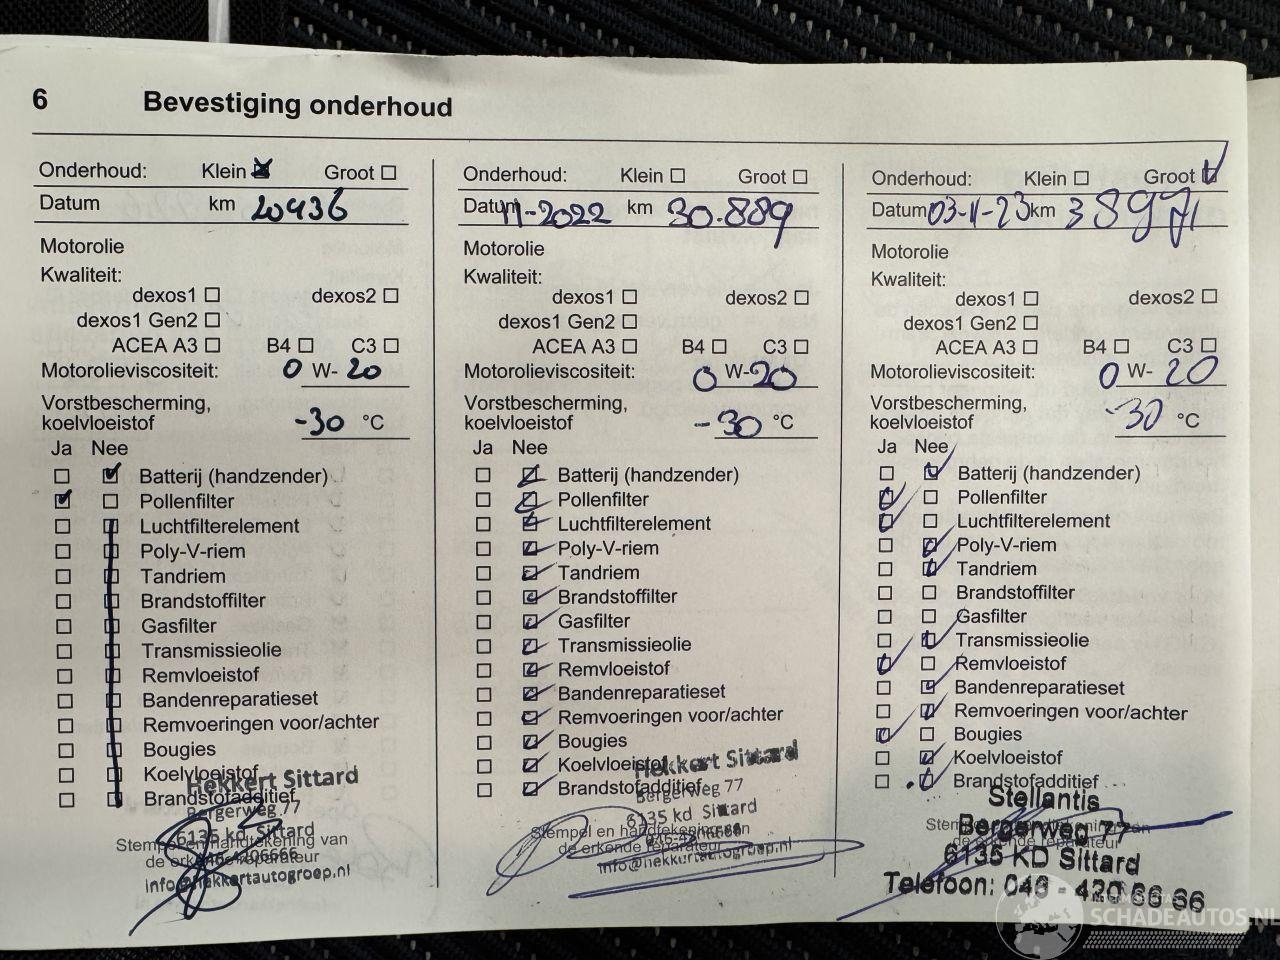 6 Bevestiging onderhoud
Onderhoud: Klein Groot
Datum km 20436
Motorolie
Kwaliteit:
dexos1 dexos2
dexos1 Gen2
ACEA A3 B4 C3
Motorolieviscositeit: 0 W- 20
Vorstbescherming,
koelvloeistof -30 °C
Ja Nee
Batterij (handzender)
Pollenfilter
Luchtfilterelement
Poly-V-riem
Tandriem
Brandstoffilter
Gasfilter
Transmissieolie
Remvloeistof
Bandenreparatieset
Remvoeringen voor/achter
Bougies
Koelvloeistof
Brandstofadditief
Hekkert Sittard
Bergerweg 77
6135 kd Sittard
Stempel en handtekening van
de erkende reparateur
info@hekkertautogroep.nl
Onderhoud: Klein Groot
Datum 11-2022 km 30.889
Motorolie
Kwaliteit:
dexos1 dexos2
dexos1 Gen2
ACEA A3 B4 C3
Motorolieviscositeit: 0 W- 20
Vorstbescherming,
koelvloeistof -30 °C
Ja Nee
Batterij (handzender)
Pollenfilter
Luchtfilterelement
Poly-V-riem
Tandriem
Brandstoffilter
Gasfilter
Transmissieolie
Remvloeistof
Bandenreparatieset
Remvoeringen voor/achter
Bougies
Koelvloeistof
Brandstofadditief
Hekkert Sittard
Bergerweg 77
6135 kd Sittard
Stempel en handtekening van
de erkende reparateur
info@hekkertautogroep.nl
Onderhoud: Klein Groot
Datum 03-11-23 km 38971
Motorolie
Kwaliteit:
dexos1 dexos2
dexos1 Gen2
ACEA A3 B4 C3
Motorolieviscositeit: 0 W- 20
Vorstbescherming,
koelvloeistof -30 °C
Ja Nee
Batterij (handzender)
Pollenfilter
Luchtfilterelement
Poly-V-riem
Tandriem
Brandstoffilter
Gasfilter
Transmissieolie
Remvloeistof
Bandenreparatieset
Remvoeringen voor/achter
Bougies
Koelvloeistof
Brandstofadditief
Stellantis
Bergerweg 77
6135 KD Sittard
Telefoon: 046 - 420 66 66
SCHADEAUTOS.NL